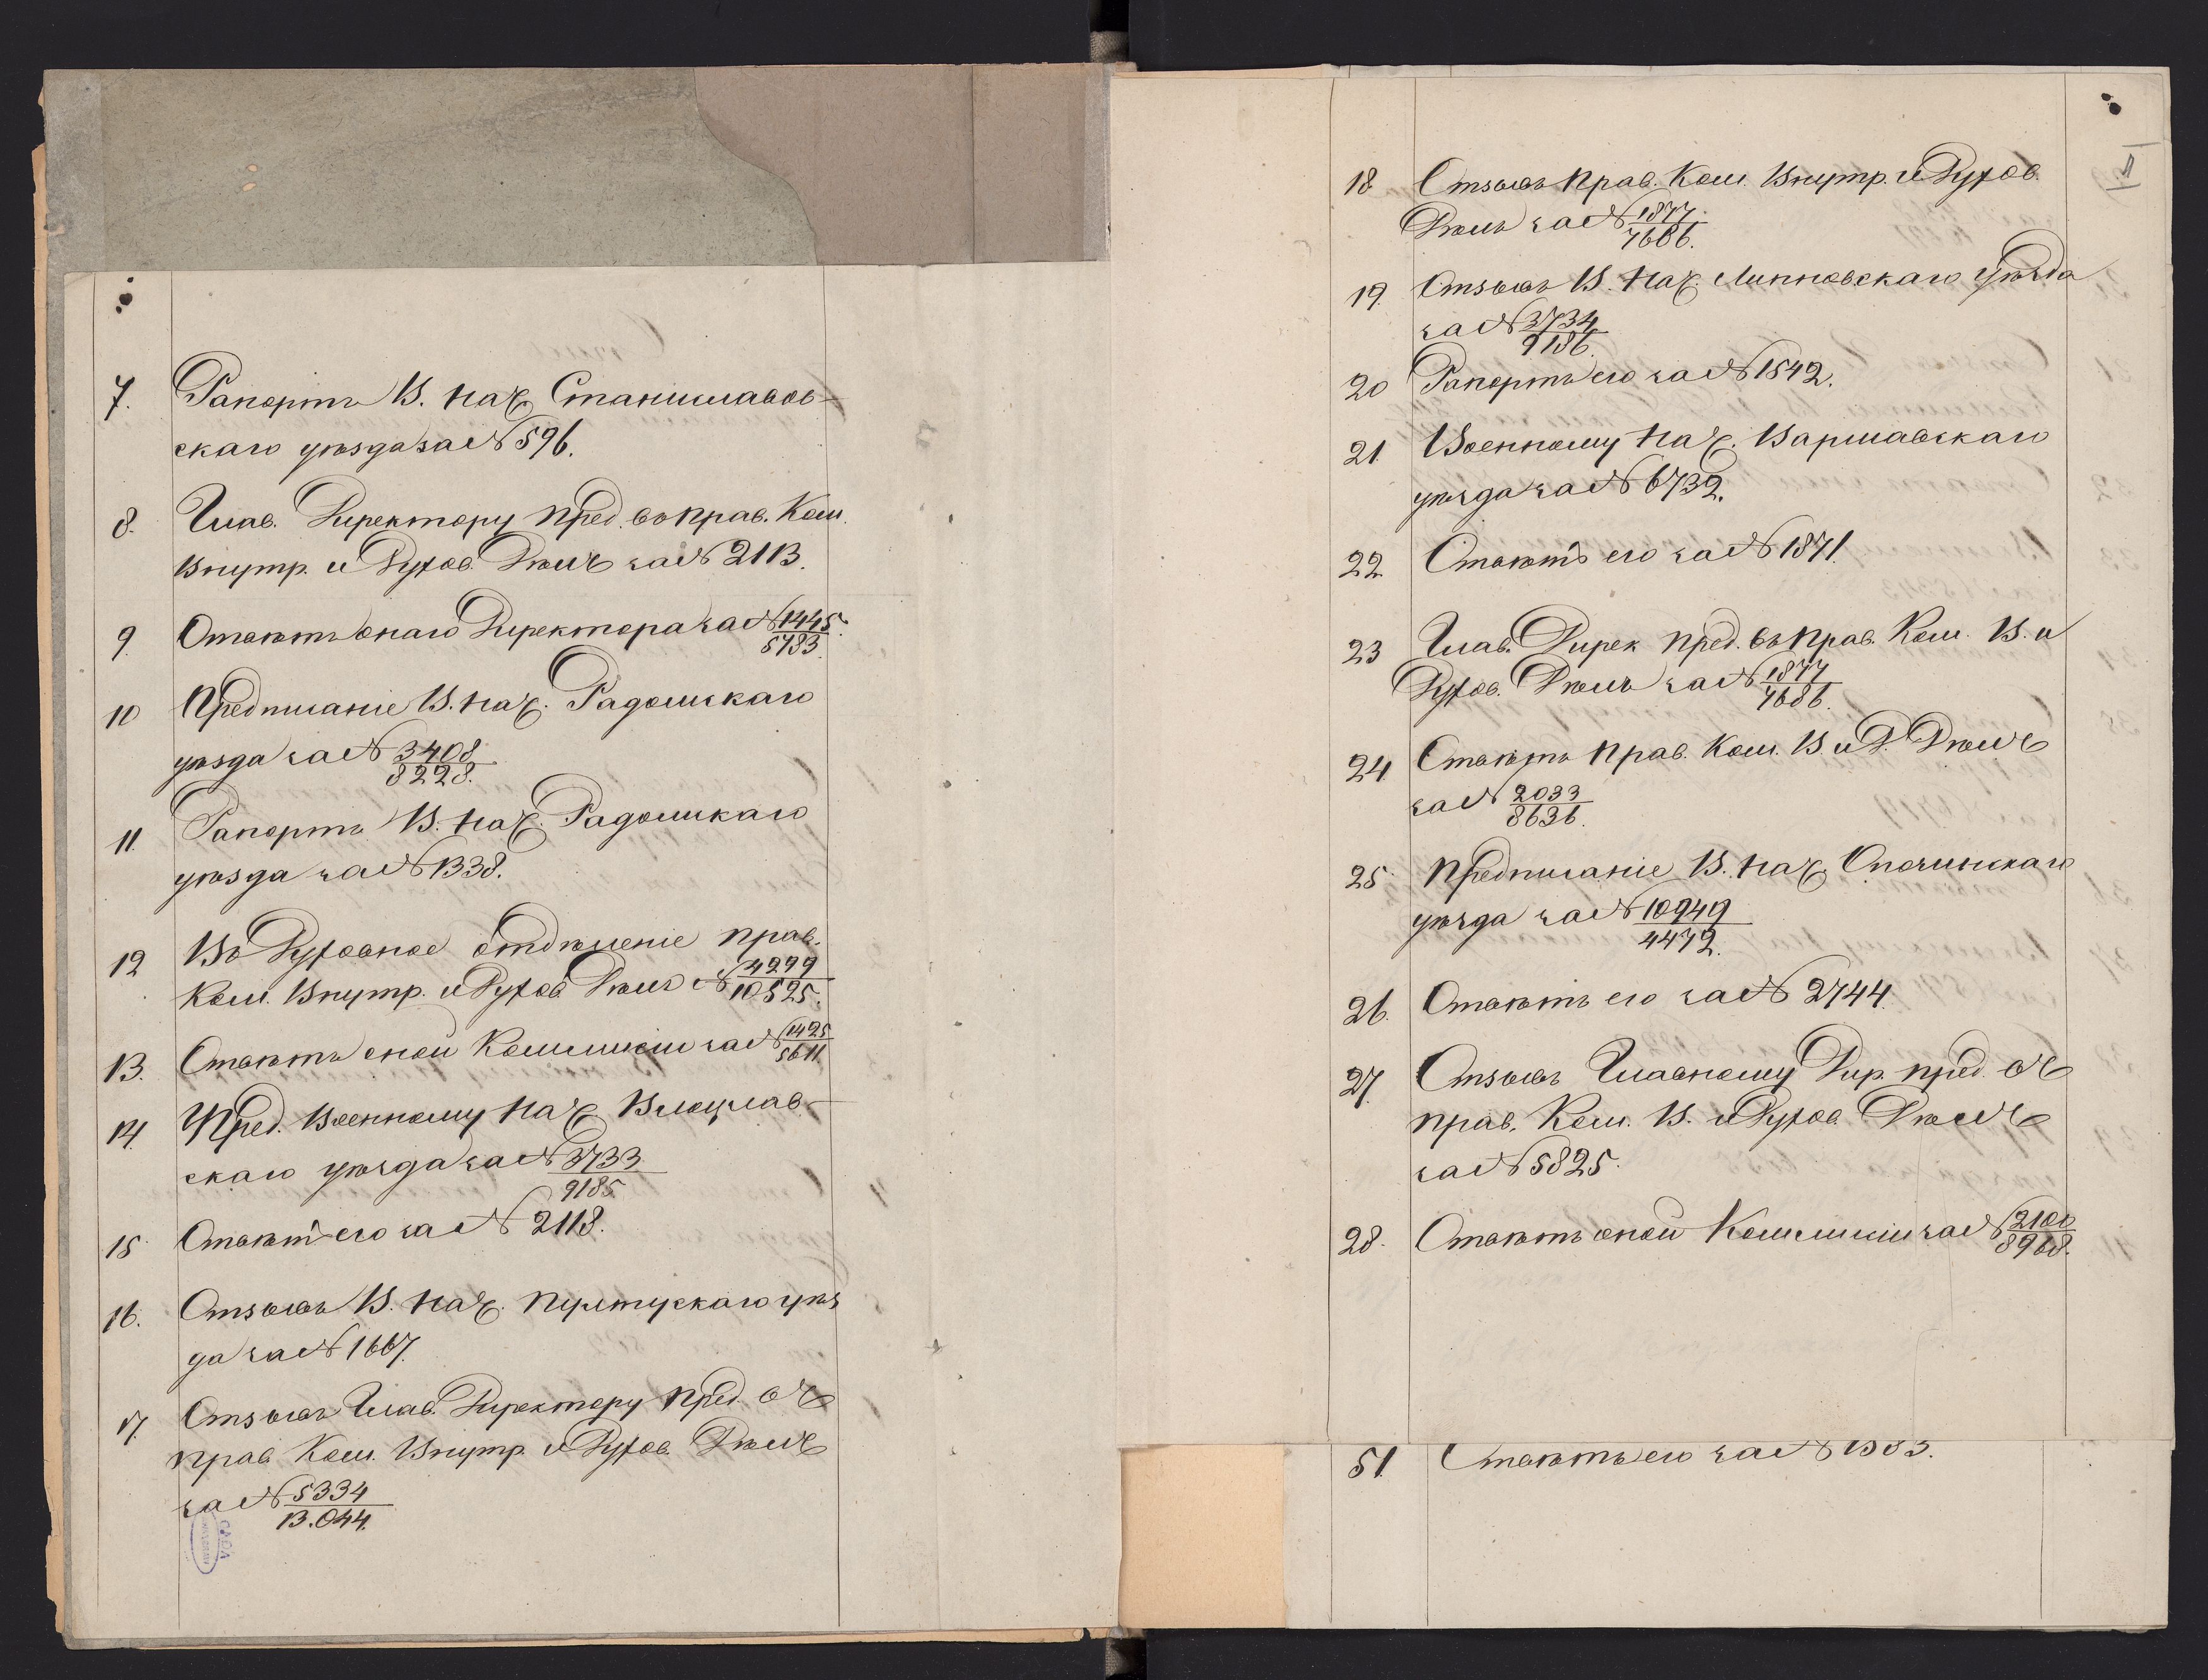 7. Рапортъ В. Нач. Станиславов-
скаго уѣзда за № 596.
8. Глав. Директору Пред. въ Прав. Ком.
Внутр. и Духов. Дѣлъ за № 2113.
9. Отвѣтъ онаго Директора за № 1445/5783.
10 Предписаніе В. Нач. Радомскаго
уѣзда за № 3408/8228.
11. Рапортъ В. Нач. Радомскаго
уѣзда за № 1338.
12 Въ Духовное отдѣленіе Прав.
Ком. Внутр. и Духов. Дѣлъ № 4299/10525.
13. Отвѣтъ оной Коммисіи за № 1425/5611.
14. Пред. Военному Нач. Влоцлав-
скаго уѣзда за № 3733/9185.
15. Отвѣтъ его за № 2118.
16. Отзывъ В. Нач. Пултускаго уѣз
да за № 1667.
17. Отзывъ Глав. Директору Пред. въ
Прав. Ком. Внутр. и Духов. Дѣлъ
за № 5334/13.044.
18 Отзывъ Прав. Ком. Внутр. и Духов.
Дѣлъ за № 1877/7686.
19. Отзывъ В. Нач. Липновскаго Уѣзда
за № 3734/9186.
20 Рапортъ его за № 1542.
21. Военному Нач. Варшавскаго
уѣзда за № 6732.
22. Отвѣтъ его за № 1871.
23 Глав. Дирек. Пред. въ Прав. Ком. В. и
Духов. Дѣлъ за № 1877/7686.
24. Отвѣтъ Прав. Ком. В. и Д. Дѣлъ
за № 2033/8636.
25. Предписаніе В. Нач. Опочинскаго
уѣзда за № 10949/4472.
26. Отвѣтъ его за № 2744.
27. Отзывъ Главному Дир. Пред. въ
Прав. Ком. В. и Духов. Дѣлъ
за № 5825.
28. Отвѣтъ оной Коммисіи за № 2100/8968.
51. Отвѣтъ его за №
II